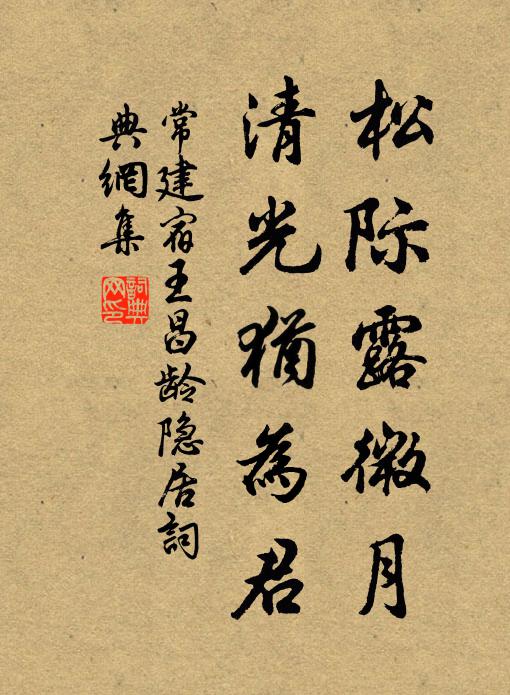 松际露微月
清光猶為君
常建宿王昌龄隐居詞
典網集
詞典
网印